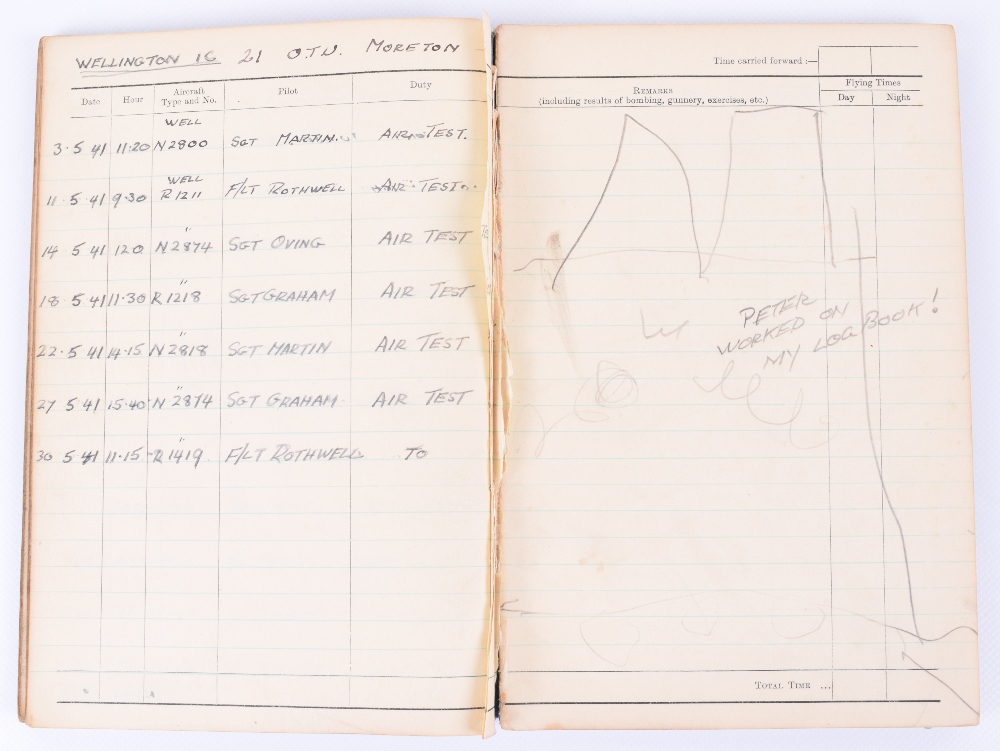 WELLINGTON 1C 21 O.T.U. MORETON
Date Hour Aircraft Type and No. Pilot Duty
WELL
3·5 41 11·20 N2800 SGT MARTIN AIR TEST.
WELL
11 5 41 9·30 R1211 F/LT ROTHWELL AIR TEST
"
14 5 41 120 N2874 SGT OVING AIR TEST
"
18 5 41 11·30 R1218 SGT GRAHAM AIR TEST
"
22·5 41 14·15 N2818 SGT MARTIN AIR TEST
"
27 5 41 15·40 N2874 SGT GRAHAM AIR TEST
"
30 5 41 11·15 R1419 F/LT ROTHWELL TO
Time carried forward :—
Remarks
(including results of bombing, gunnery, exercises, etc.)
Flying Times
Day Night
PETER
WORKED ON
MY LOG BOOK!
Total Time ...